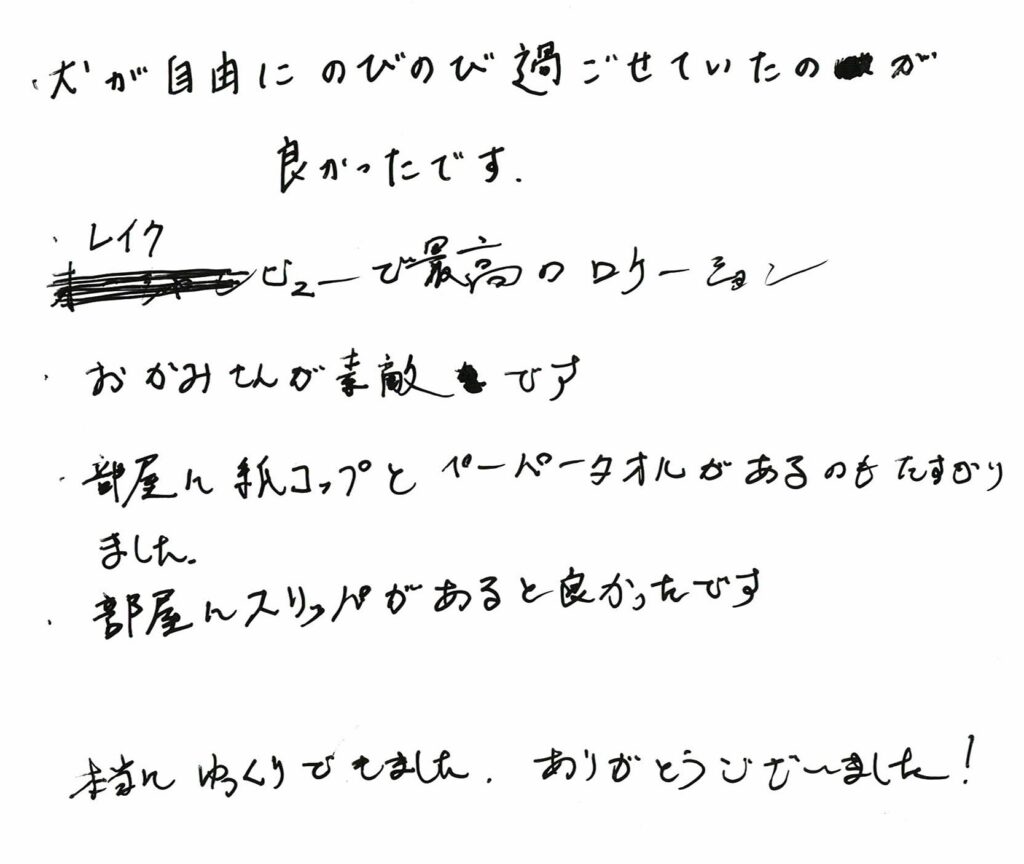 ・犬が自由にのびのび過ごせていたのが
良かったです.
・レイクビューで最高のロケーション
・おかみさんが素敵です
・部屋に紙コップとペーパータオルがあるのもたすかり
ました.
・部屋にスリッパがあると良かったです
本当にゆっくりできました. ありがとうございました!